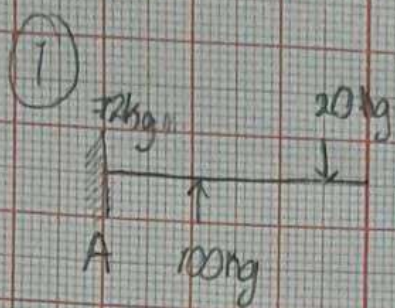 1
72kg
20kg
A
100kg